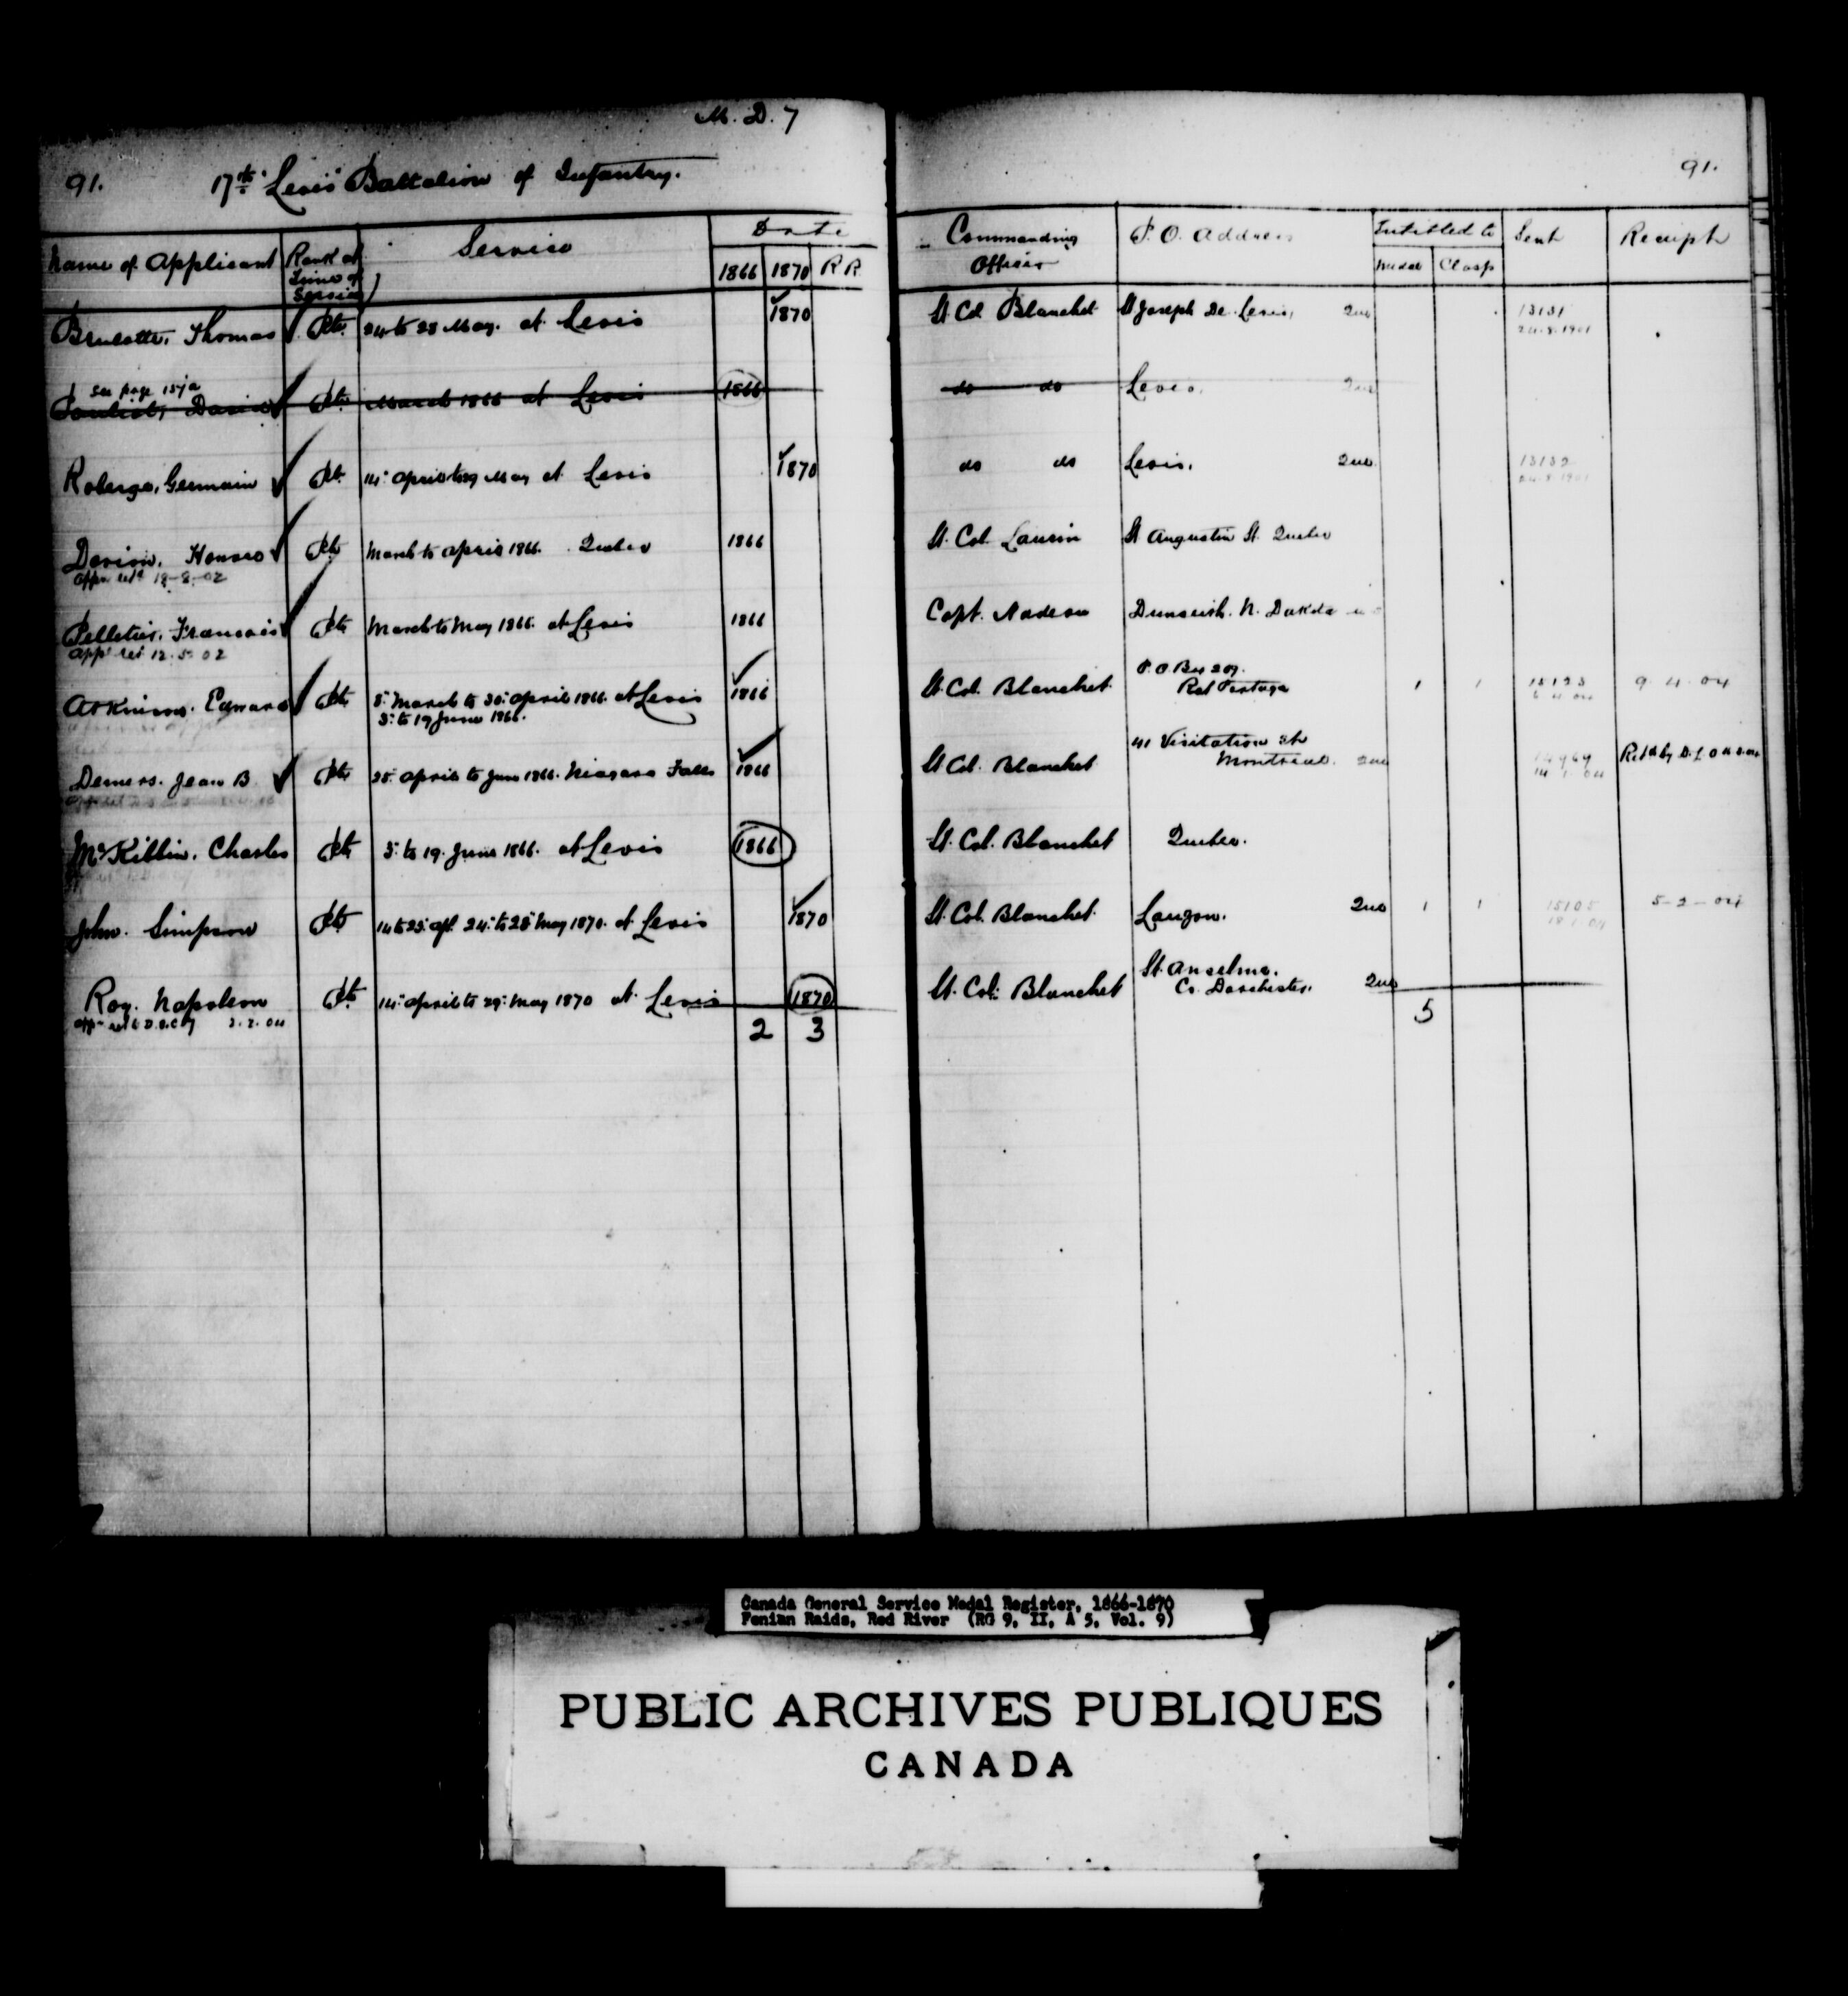 M. D. 7
91.
17th "Levis" Battalion of Infantry.
91.
Name of Applicant
Rank at Time of Service
Service
Date
1866 1870 R R
Commanding Officer
P. O. Address
Intitled to
Medal Clasp
Sent
Receipt
Brulotte, Thomas Pte. 24 to 28 May. at Levis 1870 Lt Col Blanchet St Joseph De Levis, Que 13131
24-8-1901
See page 157a
David Pte March 1866 at Levis 1866 do do Levis. Que
Roberge, Germain Pte 14" April to 29 May at Levis 1870 do do Levis, Que. 13132
24-8-1901
Pte March to April 1866. Quebec 1866 Lt. Col. Laurin St Augustin St. Quebec
18-8-02
Pelletier, Francois Pte March to May 1866. at Levis 1866 Capt. Nadeau Dunseith. N. Dakota
12.5.02
Atkinson, Edward Pte 8" March to 30" April 1866. at Levis 1866 Lt. Col. Blanchet P. O Box 209. 1 1 9.4.04
3" to 19 June 1866. Rat Portage
Demers. Jean B. Pte 25" April to June 1866. Niagara Falls 1866 Lt Col. Blanchet 41 Visitation St
Montreal. Que
McKibbin, Charles Pte 3" to 19. June 1866. at Levis 1866 Lt. Col. Blanchet Quebec.
John. Simpson Pte 14 to 25" Apl. 24" to 28" May 1870. at Levis 1870 Lt. Col. Blanchet. Lauzon. Que 1 1 15105 5-2-04
18.1.04
Roy. Napoleon Pte 14" April to 29" May 1870 at Levis 1870 Lt. Col. Blanchet St. Anselme.
Co. Dorchester. Que
2 3 5
Canada General Service Medal Register, 1866-1870
Fenian Raids, Red River (RG 9, II, A 5, Vol. 9)
PUBLIC ARCHIVES PUBLIQUES
CANADA